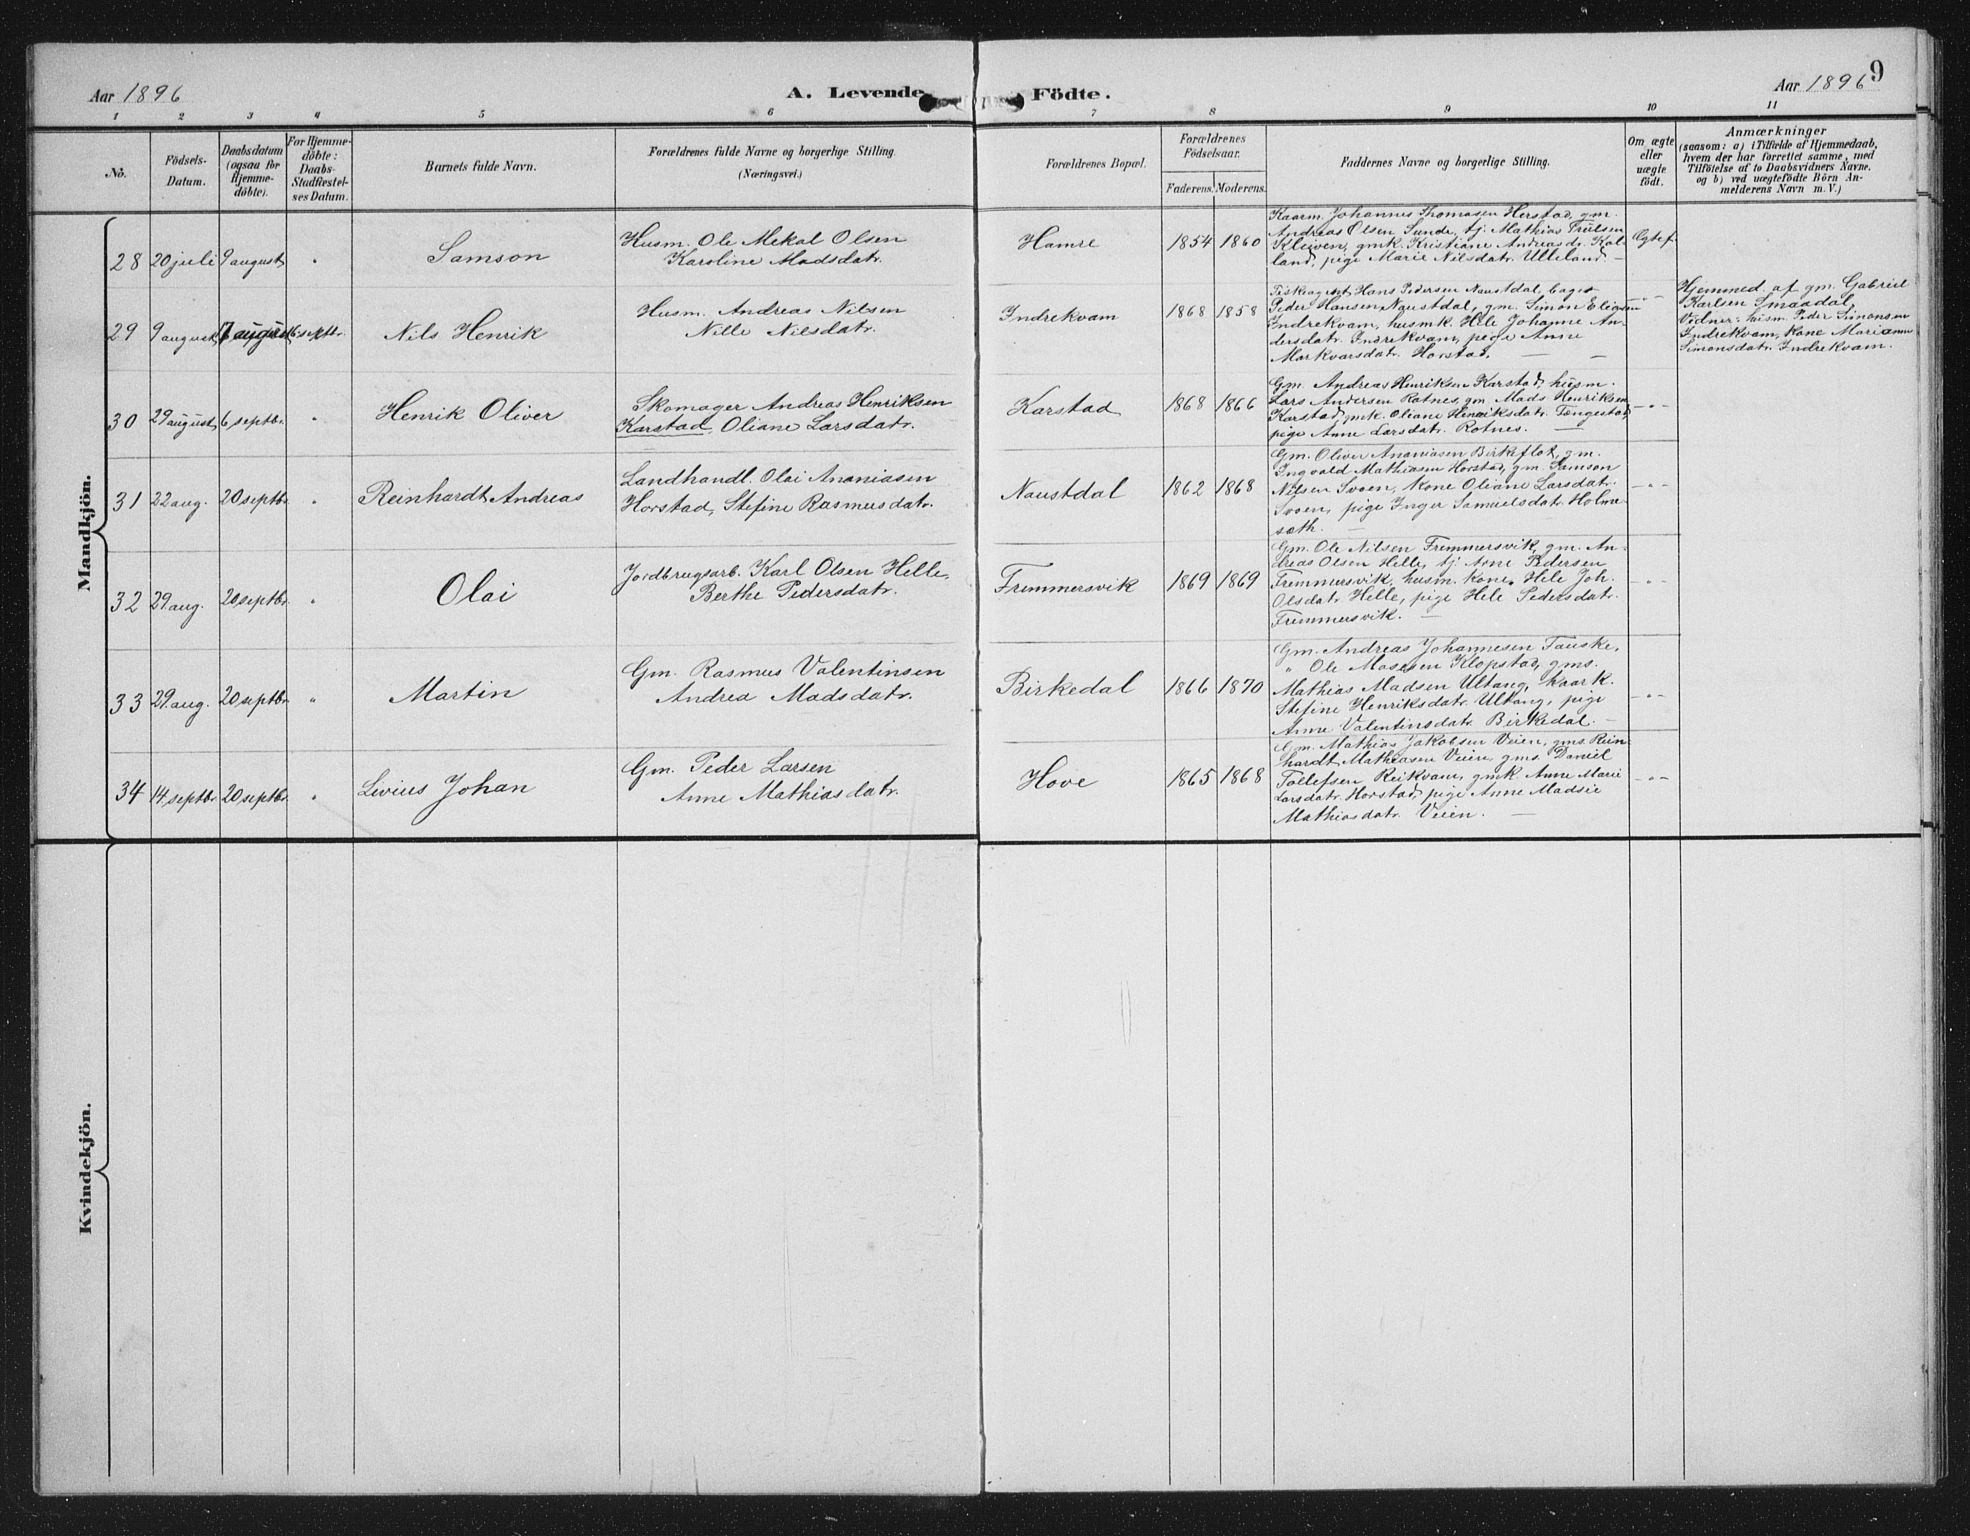 Aar 1896
A. Levende Födte.
Aar 1896
9
1 2 3 4 5 6 7 8 9 10 11
No.
Födsels-
Datum.
Daabsdatum
(ogsaa for
Hjemme-
döbte).
For Hjemme-
döbte:
Daabs-
Stadfæstel-
ses Datum.
Barnets fulde Navn.
Forældrenes fulde Navne og borgerlige Stilling.
(Næringsvei.)
Forældrenes Bopæl.
Forældrenes
Födselsaar.
Faderens. Moderens.
Faddernes Navne og borgerlige Stilling.
Om ægte
eller
uægte
födt.
Anmærkninger
(saasom: a) i Tilfælde af Hjemmedaab,
hvem der har forrettet samme, med
Tilföielse af to Daabsvidners Navne.
og b) ved uægtefödte Börn An-
melderens Navn m. V.)
Mandkjön.
28 20 juli 9 august "
Samson
Husm. Ole Mekal Olsen
Karoline Madsdatr.
Hamre
1854 1860
Kaarm. Johannes Thomasen Herstad, gm.
Andreas Olsen Sunde, tj. Mathias Trulsen
Kleiven, gmk. Kristiane Andreasdr. Kal-
land, pige Marie Nilsdatr. Ulleland. —
Ægtef.
29 9 august 6 septbr.
Nils Henrik
Husm. Andreas Nilsen
Nille Nilsdatr.
Indrekvam
1868 1858
Fiskeagent Hans Pedersen Naustdal, bager
Peder Hansen Naustdal, gm. Simon
Indrekvam, husmk. Hele Johanne An-
dersdatr. Indrekvam, pige Anne
Markvarsdatr. Horstad. — —
-"-
Hjemmed. af gm. Gabriel
Karlsen Smaadal,
Vidner: husm. Peder Simonsen
Indrekvam, Kone Marianne
Simonsdatr. Indrekvam.
30 29 august 6 septbr. "
Henrik Oliver
Skomager Andreas Henriksen
Karstad, Oliane Larsdatr.
Karstad
1868 1866
Gm. Andreas Henriksen Karstad, husm.
Lars Andersen Rotnes, gm. Mads Henriksen
Karstad, gmk. Oliane Henriksdatr. Tengestad,
pige Anne Larsdatr. Rotnes. —
-"-
31 22 aug. 20 septbr. "
Reinhardt Andreas
Landhandl. Olai Ananiasen
Horstad, Stefine Rasmusdatr.
Naustdal
1862 1868
Gm. Oliver Ananiasen Birkeflot, gm.
Ingvald Mathiasen Horstad, gm. Samson
Nilsen Svoen, Kone Oliane Larsdatr.
Svoen, pige Inger Samuelsdatr. Holme-
sæth. —
-"-
32 29 aug. 20 septbr. "
Olai
Jordbrugsarb. Karl Olsen Helle,
Berthe Pedersdatr.
Fremmersvik
1869 1869
Gm. Ole Nilsen Fremmersvik, gm. An-
dreas Olsen Helle, tj. Arne Pedersen
Fremmersvik, husm. Kone Hele Joh.
Olsdatr. Helle, pige Hele Pedersdatr.
Fremmersvik. —
-"-
33 29 aug. 20 septbr. "
Martin
Gm. Rasmus Valentinsen
Andrea Madsdatr.
Birkedal
1866 1870
Gm. Andreas Johannesen Fauske,
" Ole Mosesen Klopstad, gms.
Mathias Madsen Ultang, Kaark.
Stefine Henriksdatr. Ultang, pige
Anne Valentinsdatr. Birkedal. —
-"-
34 14 septbr. 20 septbr. "
Livius Johan
Gm. Peder Larsen
Anne Mathiasdatr.
Hove
1865 1868
Gm. Mathias Jakobsen Veien, gms. Rein-
hardt Mathiasen Veien, gms. Daniel
Tollefsen Reikvam, gmk. Anne Marie
Larsdatr. Horstad, pige Anne Madsie
Mathiasdatr. Veien. —
-"-
Kvindekjön.